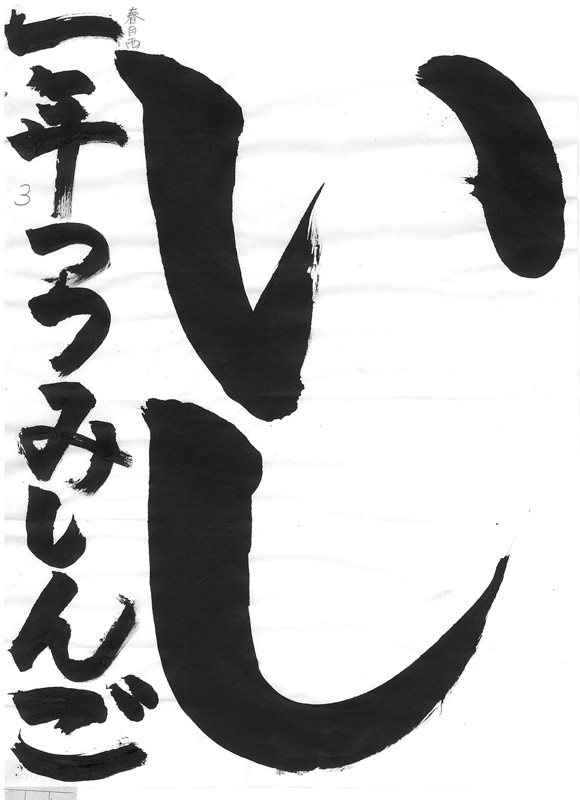 いし
一年つつみしんご
春日西
3